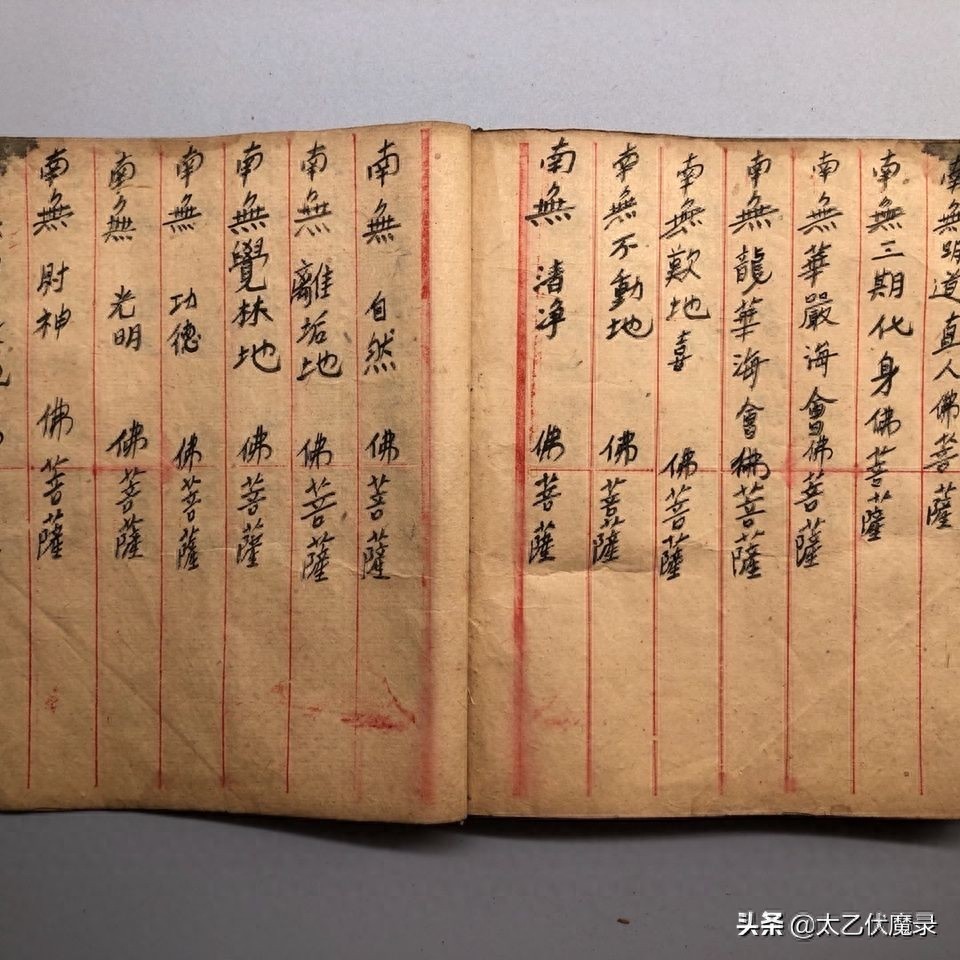 南無明道真人佛菩薩
南無三期代身佛菩薩
南無華嚴海會佛菩薩
南無龍華海會佛菩薩
南無歡地喜佛菩薩
南無不動地佛菩薩
南無清净佛菩薩
南無自然佛菩薩
南無離垢地佛菩薩
南無覺林地佛菩薩
南無功德佛菩薩
南無光明佛菩薩
南無財神佛菩薩
头条 @太乙伏魔录